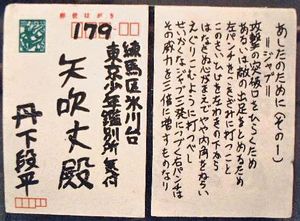 郵便はがき
179
練馬区氷川台
東京少年鑑別所 気付
矢吹丈殿
丹下段平
あしたのために(その1)
=ジャブ=
攻撃の突破口をひらくため
あるいは敵の出足をとめるため
左パンチをこきざみに打つこと
このさいひじを左わきの下から
はなさぬ心がまえでやや内角をねらい
えぐりこむように打つべし
せいかくなジャブ三発につづく右パンチは
その威力を三倍に増すものなり